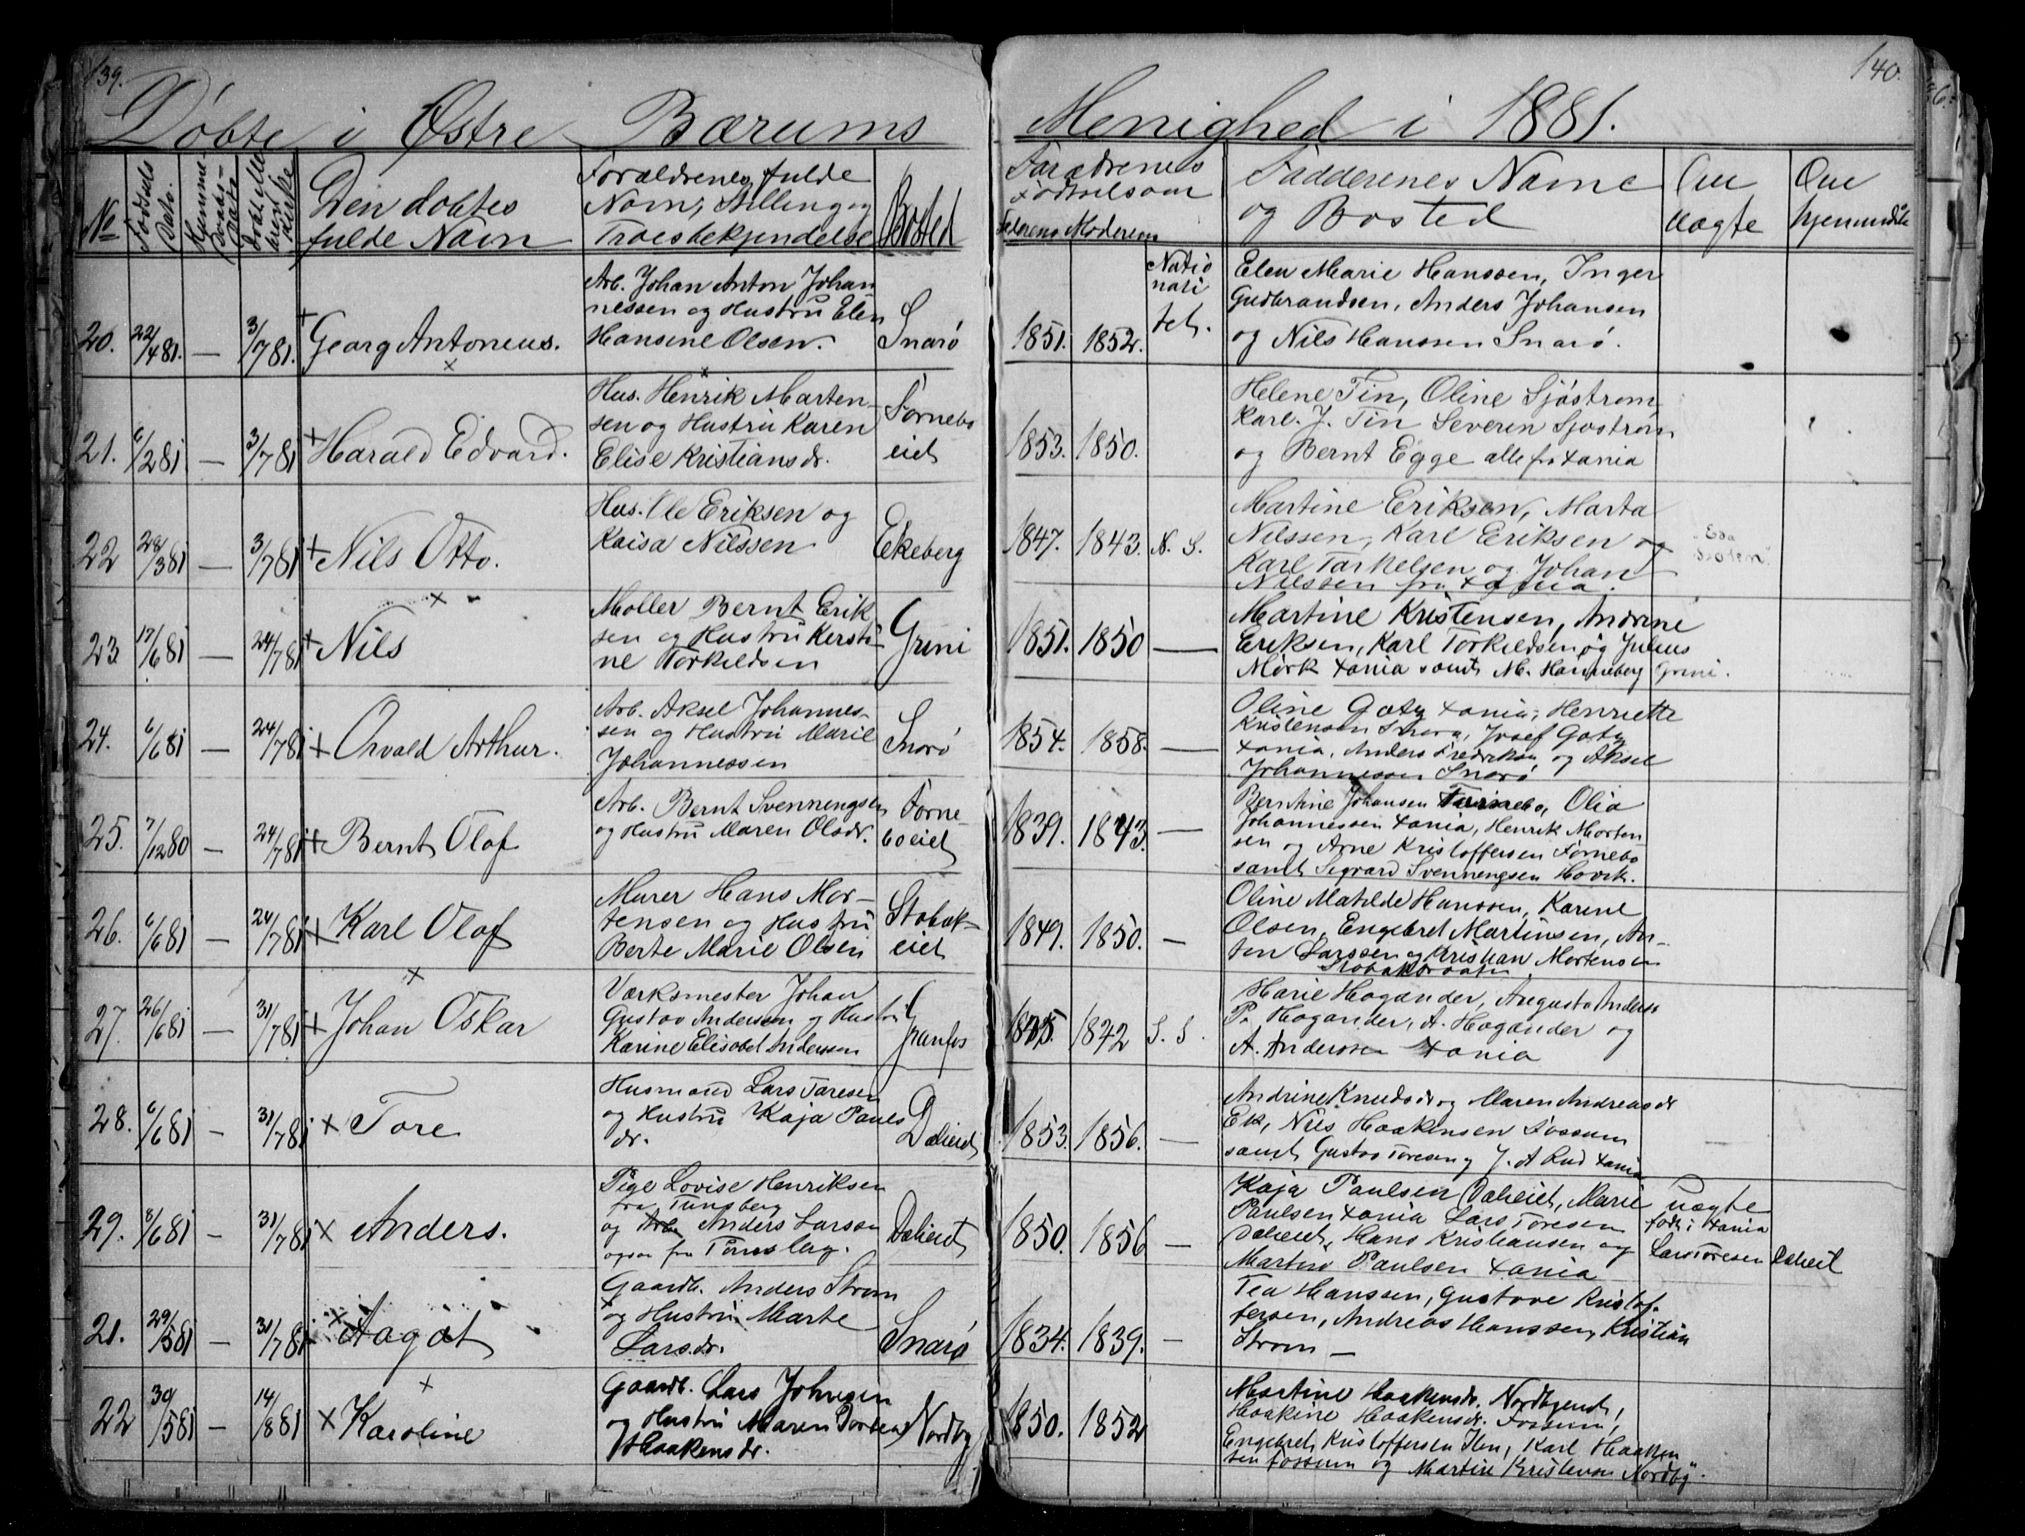 139.
Døbte i Østre Bærums
No
Fødsels
Dato.
Hjemme
daabs-
Data
Den døbtes
fulde Navn
Forældrenes fulde
Navn, Stilling og
Troesbekjendelse
Bosted
20.
22/4 81.
—
3/7 81.
Georg Antonius.
Arb. Johan Anton Johan
nessen og Hustru Elen
Hansine Olsen.
Snarø
21.
6/2 81
—
3/7 81
Harald Edvard.
Hus. Henrik Marten
sen og Hustru Karen
Elise Kristiansdr.
Fornebo
eiet
22
28/3 81
—
3/7 81
Nils Otto.
Hus. Ole Eriksen og
Kaisa Nilssen
Ekeberg
23
17/6 81
—
24/7 81
Nils
Møller Bernt Erik
sen og Hustru Kersti
ne Torkildsen
Grini
24.
6/6 81
—
24/7 81
Osvald Arthur.
Arb. Aksel Johannes-
sen og Hustru Marie
Johannessen
Snarø
25.
7/12 80
—
24/7 81
Bernt Olaf
Arb. Bernt Svenningsen
og Hustru Maren Olsdr.
Forne-
boeiet
26.
6/6 81
—
24/7 81
Karl Olaf
Murer Hans Mor-
tensen og Hustru
Berte Marie Olsen
Stabæk-
eiet
27.
26/6 81
—
31/7 81
Johan Oskar
Værksmester Johan
Gustav Andersen og Hustru
Karine Elisabet Anderssen
Granfos
28.
6/6 81
—
31/7 81
Tore
Husmand Lars Toresen
og Hustru Kaja Pauls
dr.
Dæleiet
29.
8/6 81
—
31/7 81
Anders.
Pige Lovise Henriksen
fra Tunsberg
og Anders Larssen
ogsaa fra Tønsberg.
Dæleiet
21.
29/5 81
—
31/7 81
Aagot
Gaardb. Anders Strøm
og Hustru Marte
Larsdr.
Snarø
22
30/5 81
—
14/8 81
Karoline
Gaardb. Lars Johnsen
og Hustru Maren Dortea
Haakensdr.
Nordby
140.
Menighed i 1881.
Forældrenes
Fødselsaar
Faderens Moderens
Fadderenes Navne
og Bosted
Om
uægte
Om
hjemmedøbt
Natio
nali
tet.
1851. 1852.
Elen Marie Hanssen, Inger
Gudbrandsen, Anders Johansen
og Nils Hanssen Snarø.
1853. 1850.
Helene Tin, Oline Sjöstrøm
Karl. J. Tin Severin Sjöstrøm
og Bernt Egge alle fra Xania
1847. 1843. N. S.
Martine Eriksen, Marta
Nilssen, Karl Eriksen og
Karl Torkelsen og Johan
Nilssen fra Xania.
1851. 1850 —
Martine Kristensen, Andrine
Eriksen, Karl Torkildsen og Julius
Mørk Xania samt M. Hanneborg Grini.
1854. 1858. —
Oline Gaty Xania, Henriette
Kristensen Snarø, Josef Gaty
Xania, Anders Fredriksen og Aksel
Johannessen Snarø
1839. 1843. —
Berntine Johansen Fornebo, Olia
Johannessen Xania, Henrik Morten
sen og Arne Kristoffersen Fornebo
samt Sigvard Svenningsen Høvik.
1849. 1850. —
Oline Matilde Hanssen, Karine
Olsen, Engebret Martinsen, An-
ton Larssen og Kristian Mortensen
1842 S. S.
Marie Høgander, Augusta Anders.
P. Høgander, A. Høgander og
A. Andersen Xania
1853. 1856. —
Andrine Knudsdr og Maren Andreasdr
Ek, Nils Haakensen Fossum
samt Gustav Toresen og J. A Rud Xania
1850. 1856 —
Kaja Paulsen Dæleiet, Marie
Paulsen Xania Lars Toresen
Dæleiet, Hans Kristiansen og
Martin Paulsen Xania
uægte
født i Xania
Lars Toresen Dæleiet
1834. 1839. —
Tea Hanssen, Gustave Kristof-
fersen, Andreas Hanssen, Kristian
Strøm —
1850. 1852
Martine Haakensdr. Nordbyeiet,
Haakine Haakensdr. Fossum,
Engebret Kristoffersen Ilen, Karl Haaken
sen Fossum og Martin Kristensen Nordby.